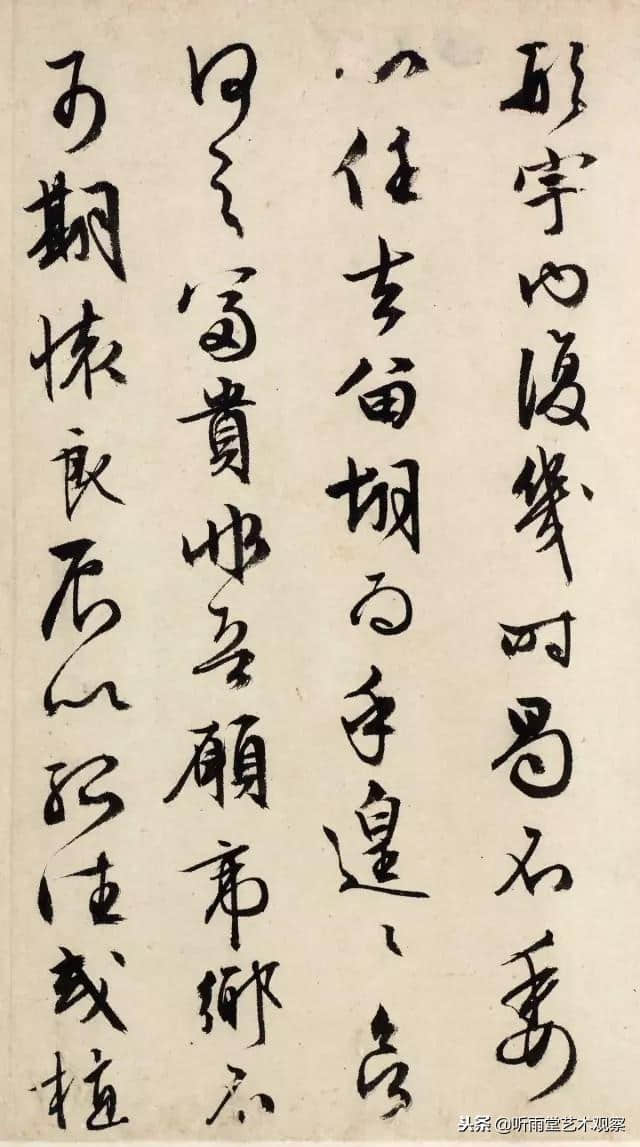 形宇内復幾時曷不委
心任去留胡為乎遑〻欲
何之富貴非吾願帝鄉不
可期懷良辰以孤往或植
头条 @听雨堂艺术观察